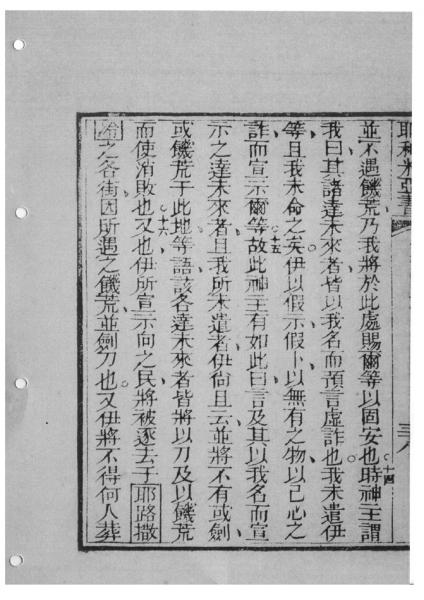 耶利米亞書
三八
並不遇饑荒乃我將於此處賜爾等以固安也十四時神主謂
我曰其諸達未來者皆以我名而預言虛詐也我未遣伊
等且我未命之矣伊以假示假卜以無有之物以己心之
詐而宣示爾等十五故此神主有如此曰言及其以我名而宣
示之達未來者且我所未遣者伊尙且云並將不有或劍
或饑荒于此地等語該各達未來者皆將以刀及以饑荒
而使消敗也十六又也伊所宣示向之民將被逐去于耶路撒
冷之各街因所遇之饑荒並劍刀也又伊將不得何人葬